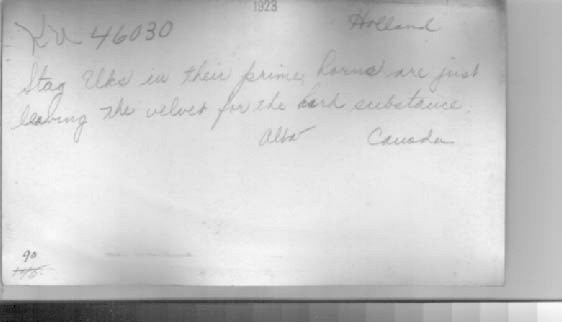 1923
46030 Holland
Stag Elks in their prime, horns are just
leaving the velvet for the hard substance.
Alta Canada
90